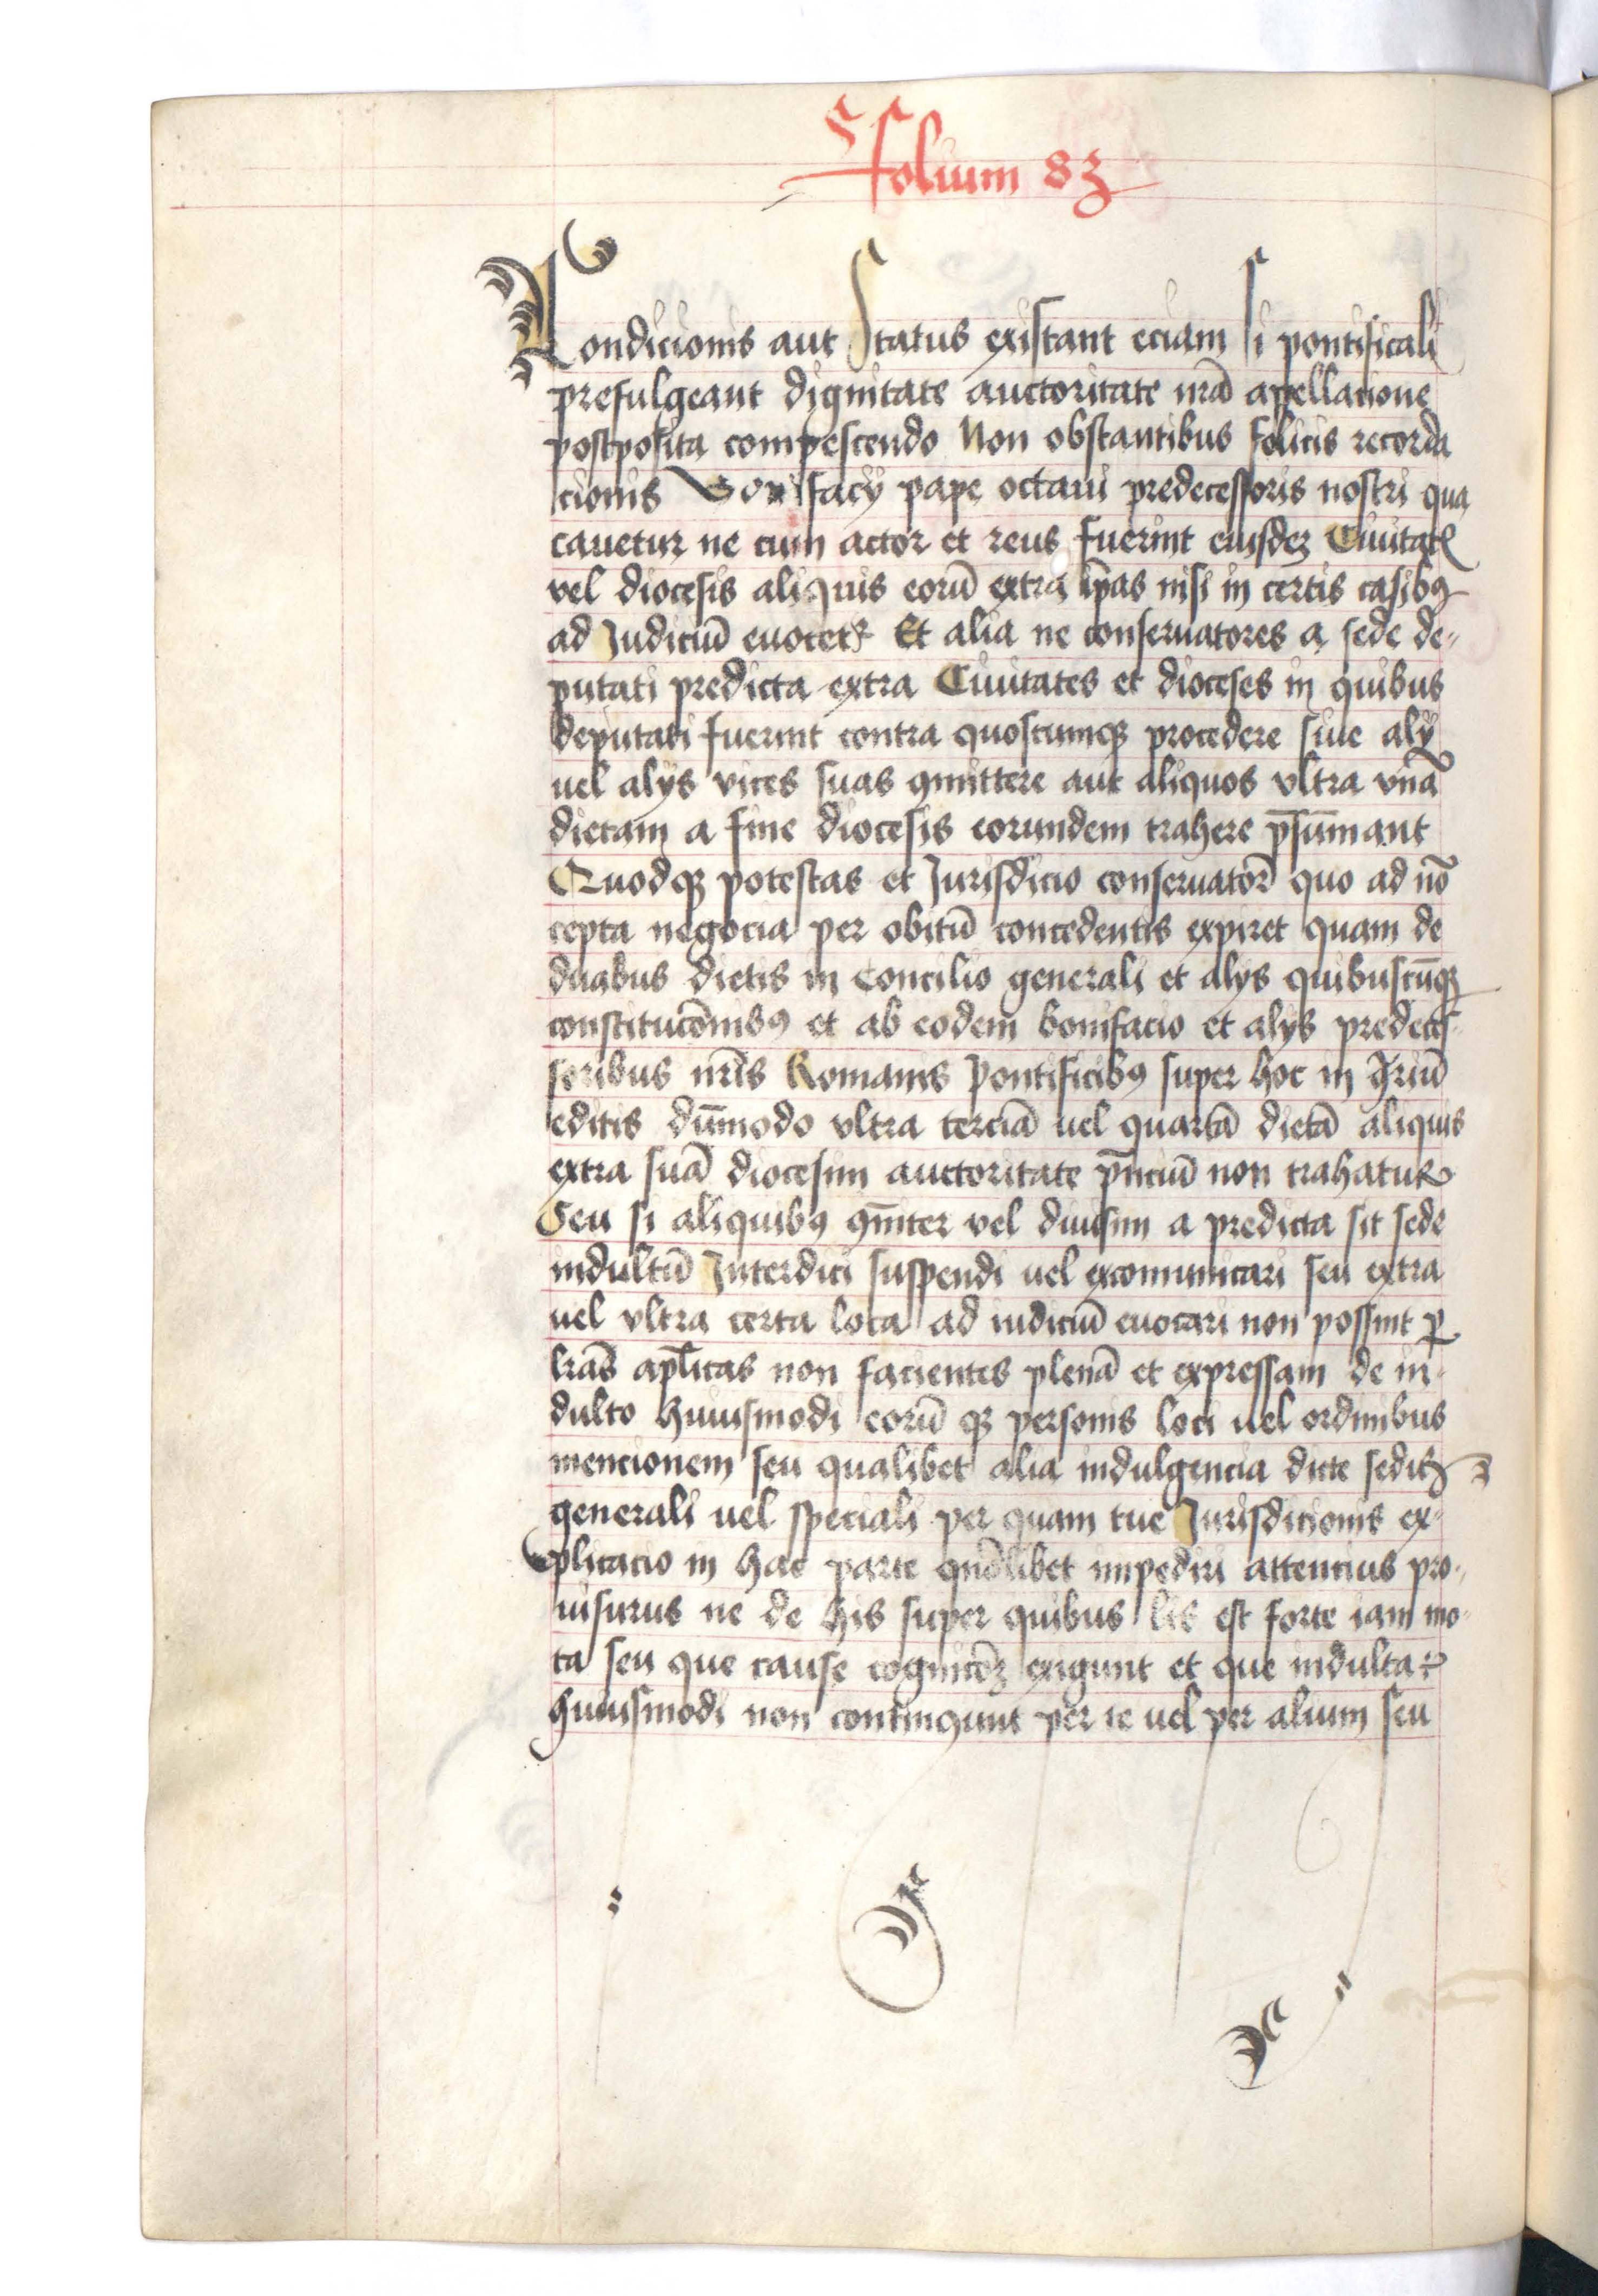 folium 83
Condicionis aut Status existant eciam si pontificali
prefulgeant dignitate auctoritate nrā apellacione
postposita compescendo Non obstantibus felicis recorda
cionis Bonifacij pape octaui predecessoris nostri qua
cauetur ne cum actor et reus fuerint eiusdez Ciuitatꝭ
vel diocesis aliquis eorū extra ip̄as nisi in certis casibꝰ
ad Judiciū euocetr Et alia ne conseruatores a sede de„
putati predicta extra Ciuitates et dioceses in quibus
deputati fuerint contra quoscumqꝫ procedere siue alij
uel alijs vices suas ꝯmittere aut aliquos vltra vnā
dietam a fine diocesis eorundem trahere p̄sumant
Quodqꝫ potestas et Jurisdicio conseruatorꝝ quo ad nō
cepta negocia per obitū concedentis expiret quam de
duabus dietis in Concilio generali et alijs quibuscūqꝫ
constitucōnibꝰ et ab eodem bonifacio et alijs predeces-
soribus nr̄is Romanis Pontificibꝰ super hoc in ꝯriū
editis dūmodo vltra terciā uel quartā dietā aliquis
extra suā diocesim auctoritate p̄nciū non trahatur
Seu si aliquibꝰ ꝯīter vel diuisim a predicta sit sede
indultū Interdici suspendi uel excomunicari seu extra
uel vltra certa loca ad iudiciū euocari non possint ꝑ
lrās ap̄licas non facientes plenā et expressam de in-
dulto huiusmodi eorū qꝫ personis loci uel ordinibus
mencionem seu qualibet alia indulgencia dicte sedis
generali uel speciali per quam tue Jurisdicionis ex-
plicacio in hac parte qn̄dlibet impediri attencius pro„
uisurus ne de his super quibus lis est forte iam mo-
ta seu que cause cognicōēz exigunt et que indulta
huiusmodi non contingunt per te uel per alium seu